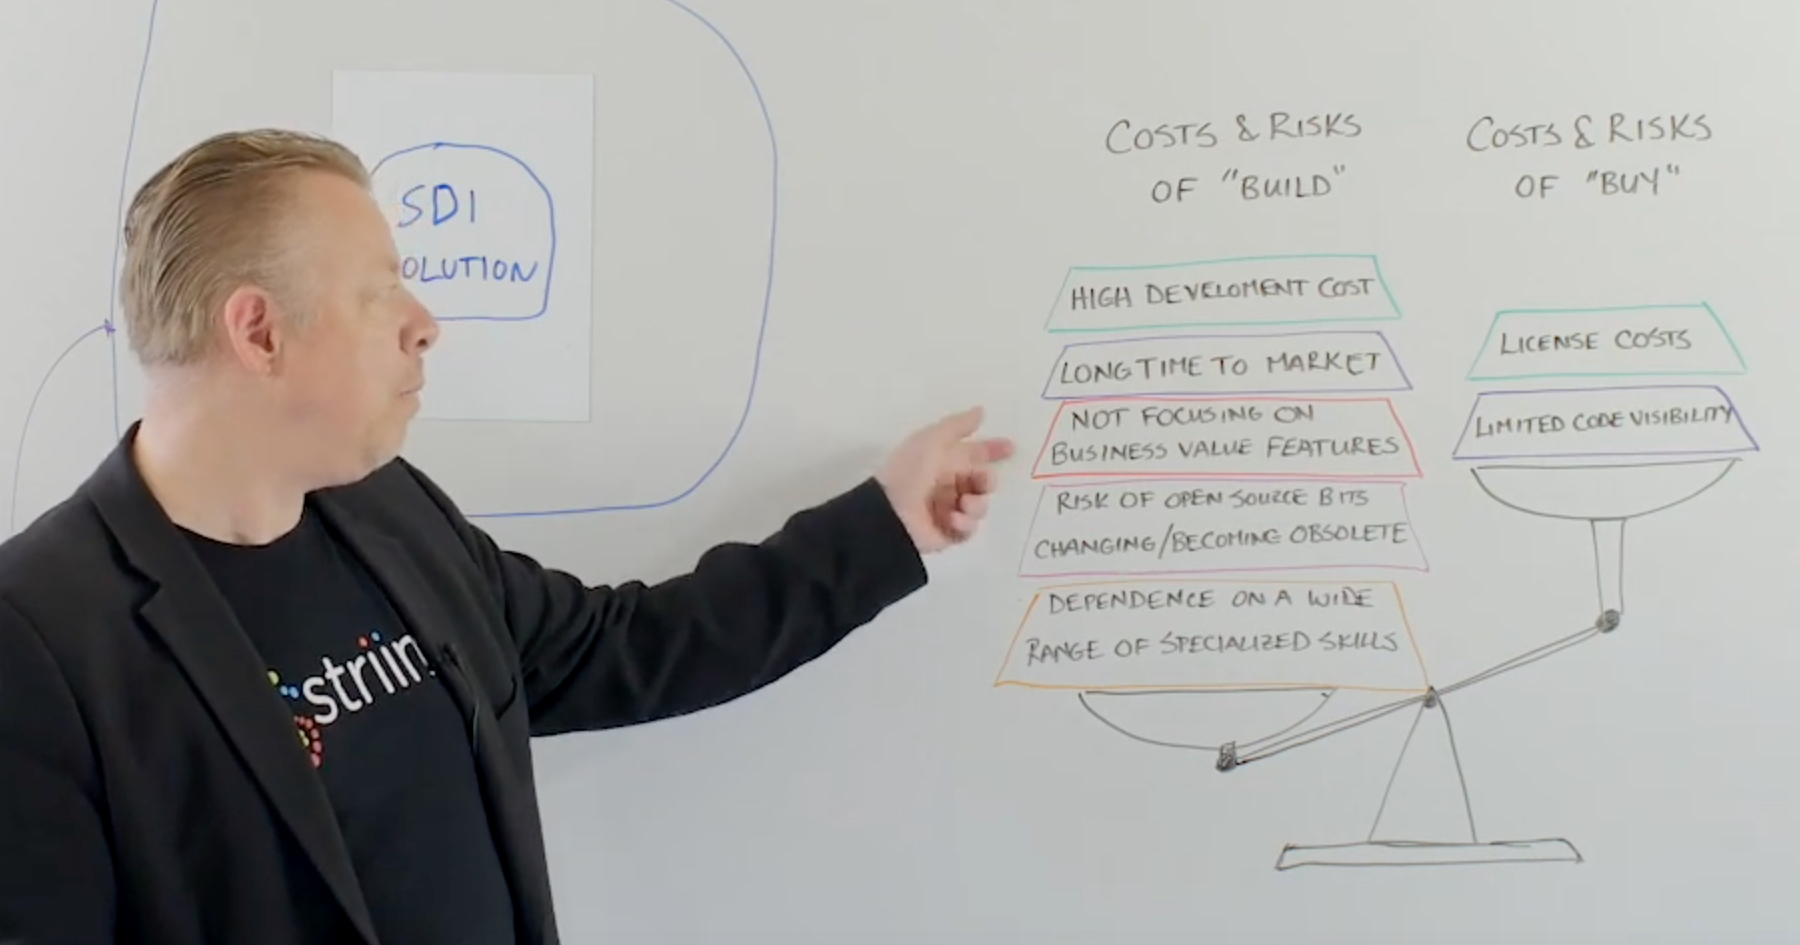 SDI
OLUTION
striim
COSTS & RISKS
OF "BUILD"
HIGH DEVELOMENT COST
LONG TIME TO MARKET
NOT FOCUSING ON
BUSINESS VALUE FEATURES
RISK OF OPEN SOURCE BITS
CHANGING/BECOMING OBSOLETE
DEPENDENCE ON A WIDE
RANGE OF SPECIALIZED SKILLS
COSTS & RISKS
OF "BUY"
LICENSE COSTS
LIMITED CODE VISIBILITY